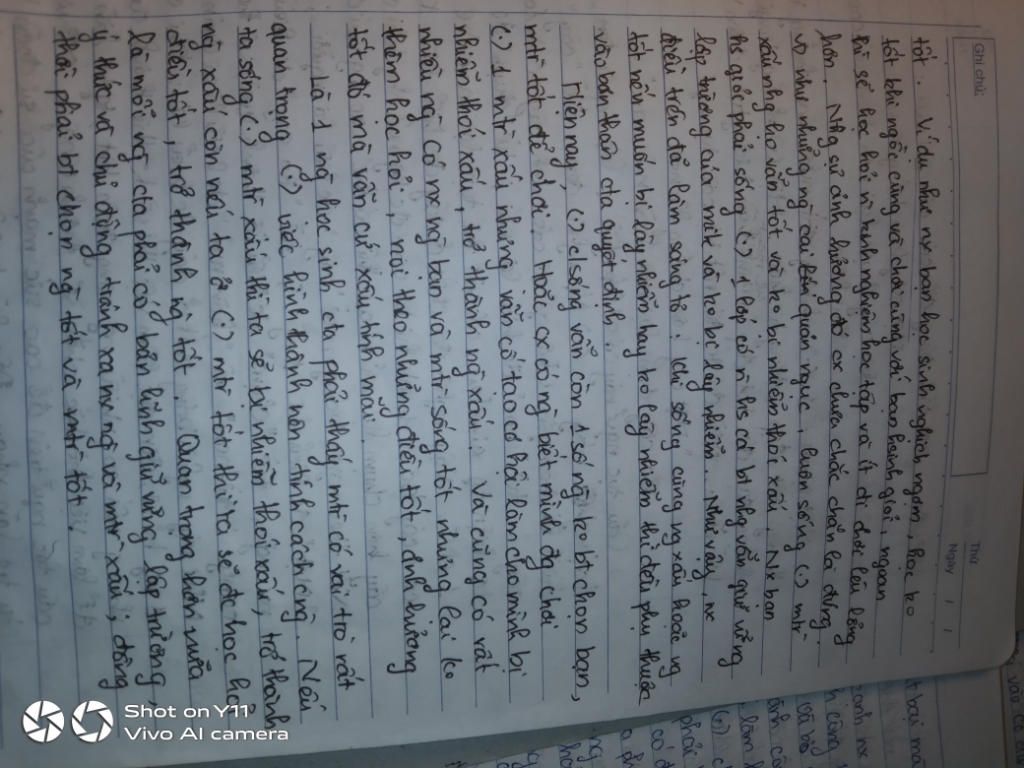 Ghi chú:
Thứ
Ngày / /
tốt. Ví dụ như nx bạn học sinh nghịch ngợm, học ko
tốt khi ngồi cùng và chơi cùng với bạn học giỏi, ngoan
thì sẽ học hỏi kinh nghiệm học tập và ít đi chơi lêu lổng
hơn. Nhg sự ảnh hưởng đó ox chưa chắc chắn là đúng.
vd như những ng cai quản ngục, luôn sống (.) mtr
xấu nhg họ vẫn tốt và ko bị nhiễm thói xấu. Nx bạn
hs giỏi phải sống (.) 1 lớp có n hs cá bt nhg vẫn giữ vững
lập trường của mk và ko bị lây nhiễm. Như vậy, nx
điều trên đã làm sáng tỏ: khi sống cùng ng xấu hoặc ng
tốt nếu muốn bị lây nhiễm hay ko lây nhiễm thì đều phụ thuộc
vào bản thân cta quyết định.
Hiện nay, (.) c/sống vẫn còn 1 số ng ko bt chọn bạn,
mtr tốt để chơi. Hoặc cx có ng biết mình đg chơi
(.) 1 mtr xấu nhưng vẫn cố tạo cơ hội làm cho mình bị
nhiễm thói xấu, trở thành ng xấu. Và cũng có rất
nhiều ng có nx ng bạn và mtr sống tốt nhưng lại ko
thèm học hỏi, noi theo những điều tốt, định hướng
tốt đó mà vẫn cứ xấu tính mãi.
Là 1 ng học sinh cta phải thấy mtr có vai trò rất
quan trọng (.) việc hình thành nên tính cách cng. Nếu
ta sống (.) mtr xấu thì ta sẽ bị nhiễm thói xấu, trở thành
ng xấu còn nếu ta ở (.) mtr tốt thì ta sẽ đc học hỏi
điều tốt, trở thành ng tốt. Quan trọng hơn nữa
là mỗi ng cta phải có bản lĩnh giữ vững lập trường,
ý thức và chủ động tránh xa nx ng và mtr xấu; đồng
thời phải bt chọn ng tốt và mtr tốt.
Shot on Y11
Vivo AI camera